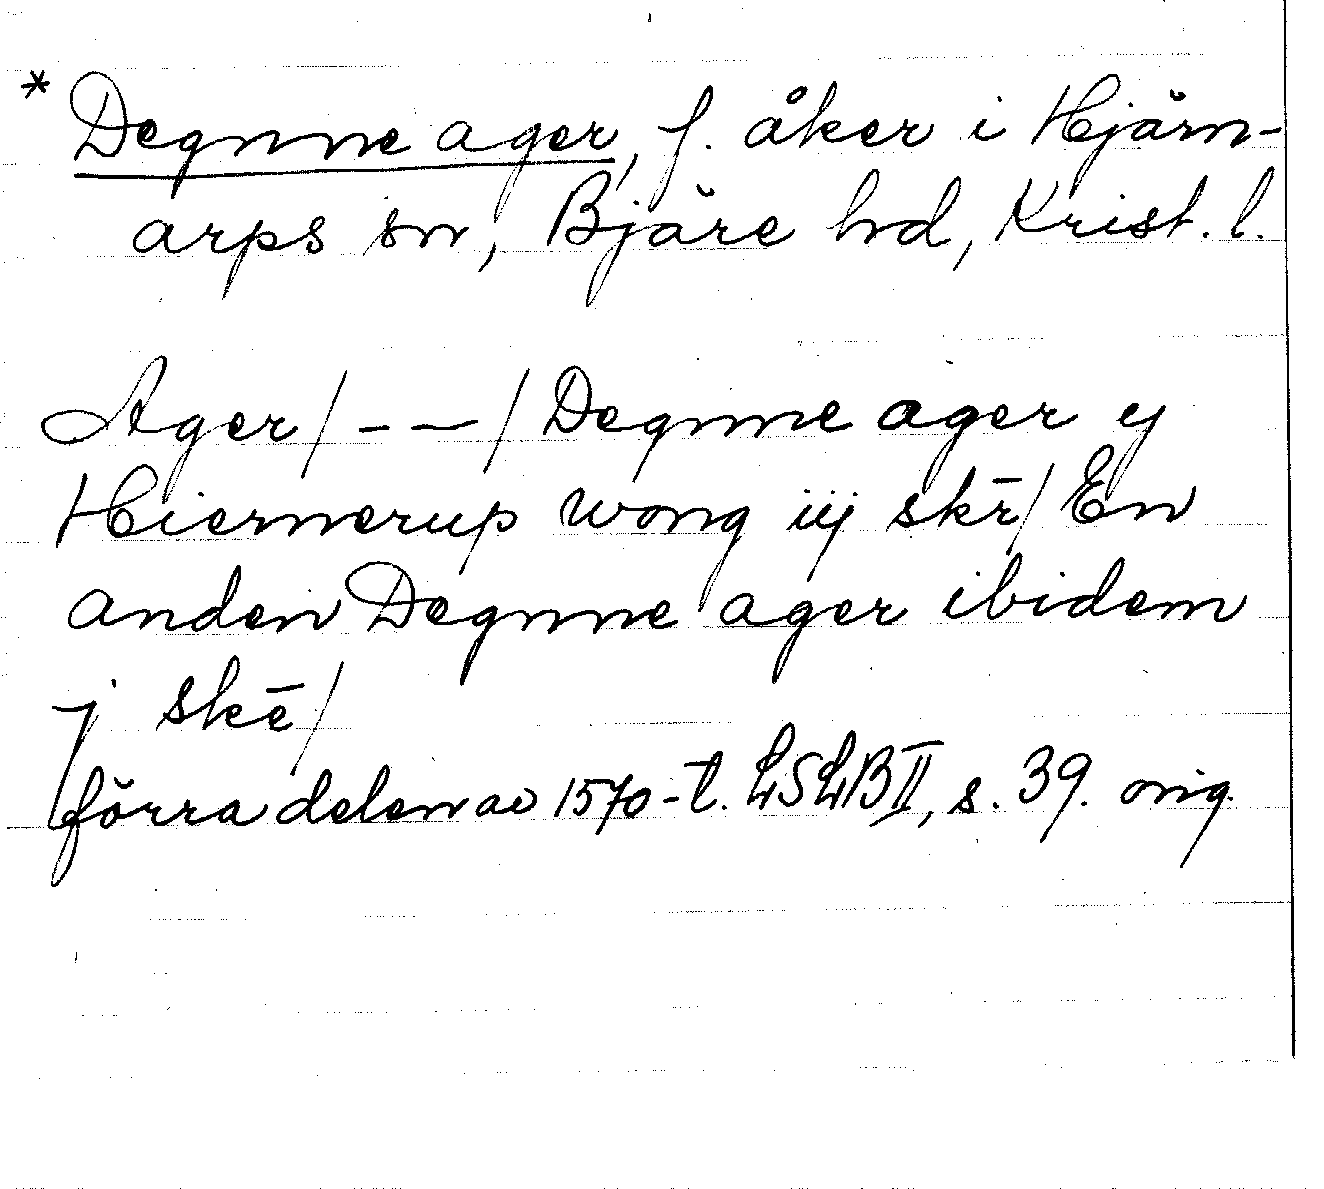 * Degnne ager, f. åker i Hjärn-
arps sn, Bjäre hd, Krist. l.
Ager/ – – / Degnne ager ej
Hiernerup wong iij skē/ En
anden Degnne ager ibidem
j skē/
förra delen av 1570-t. LSLB II, s. 39. orig.